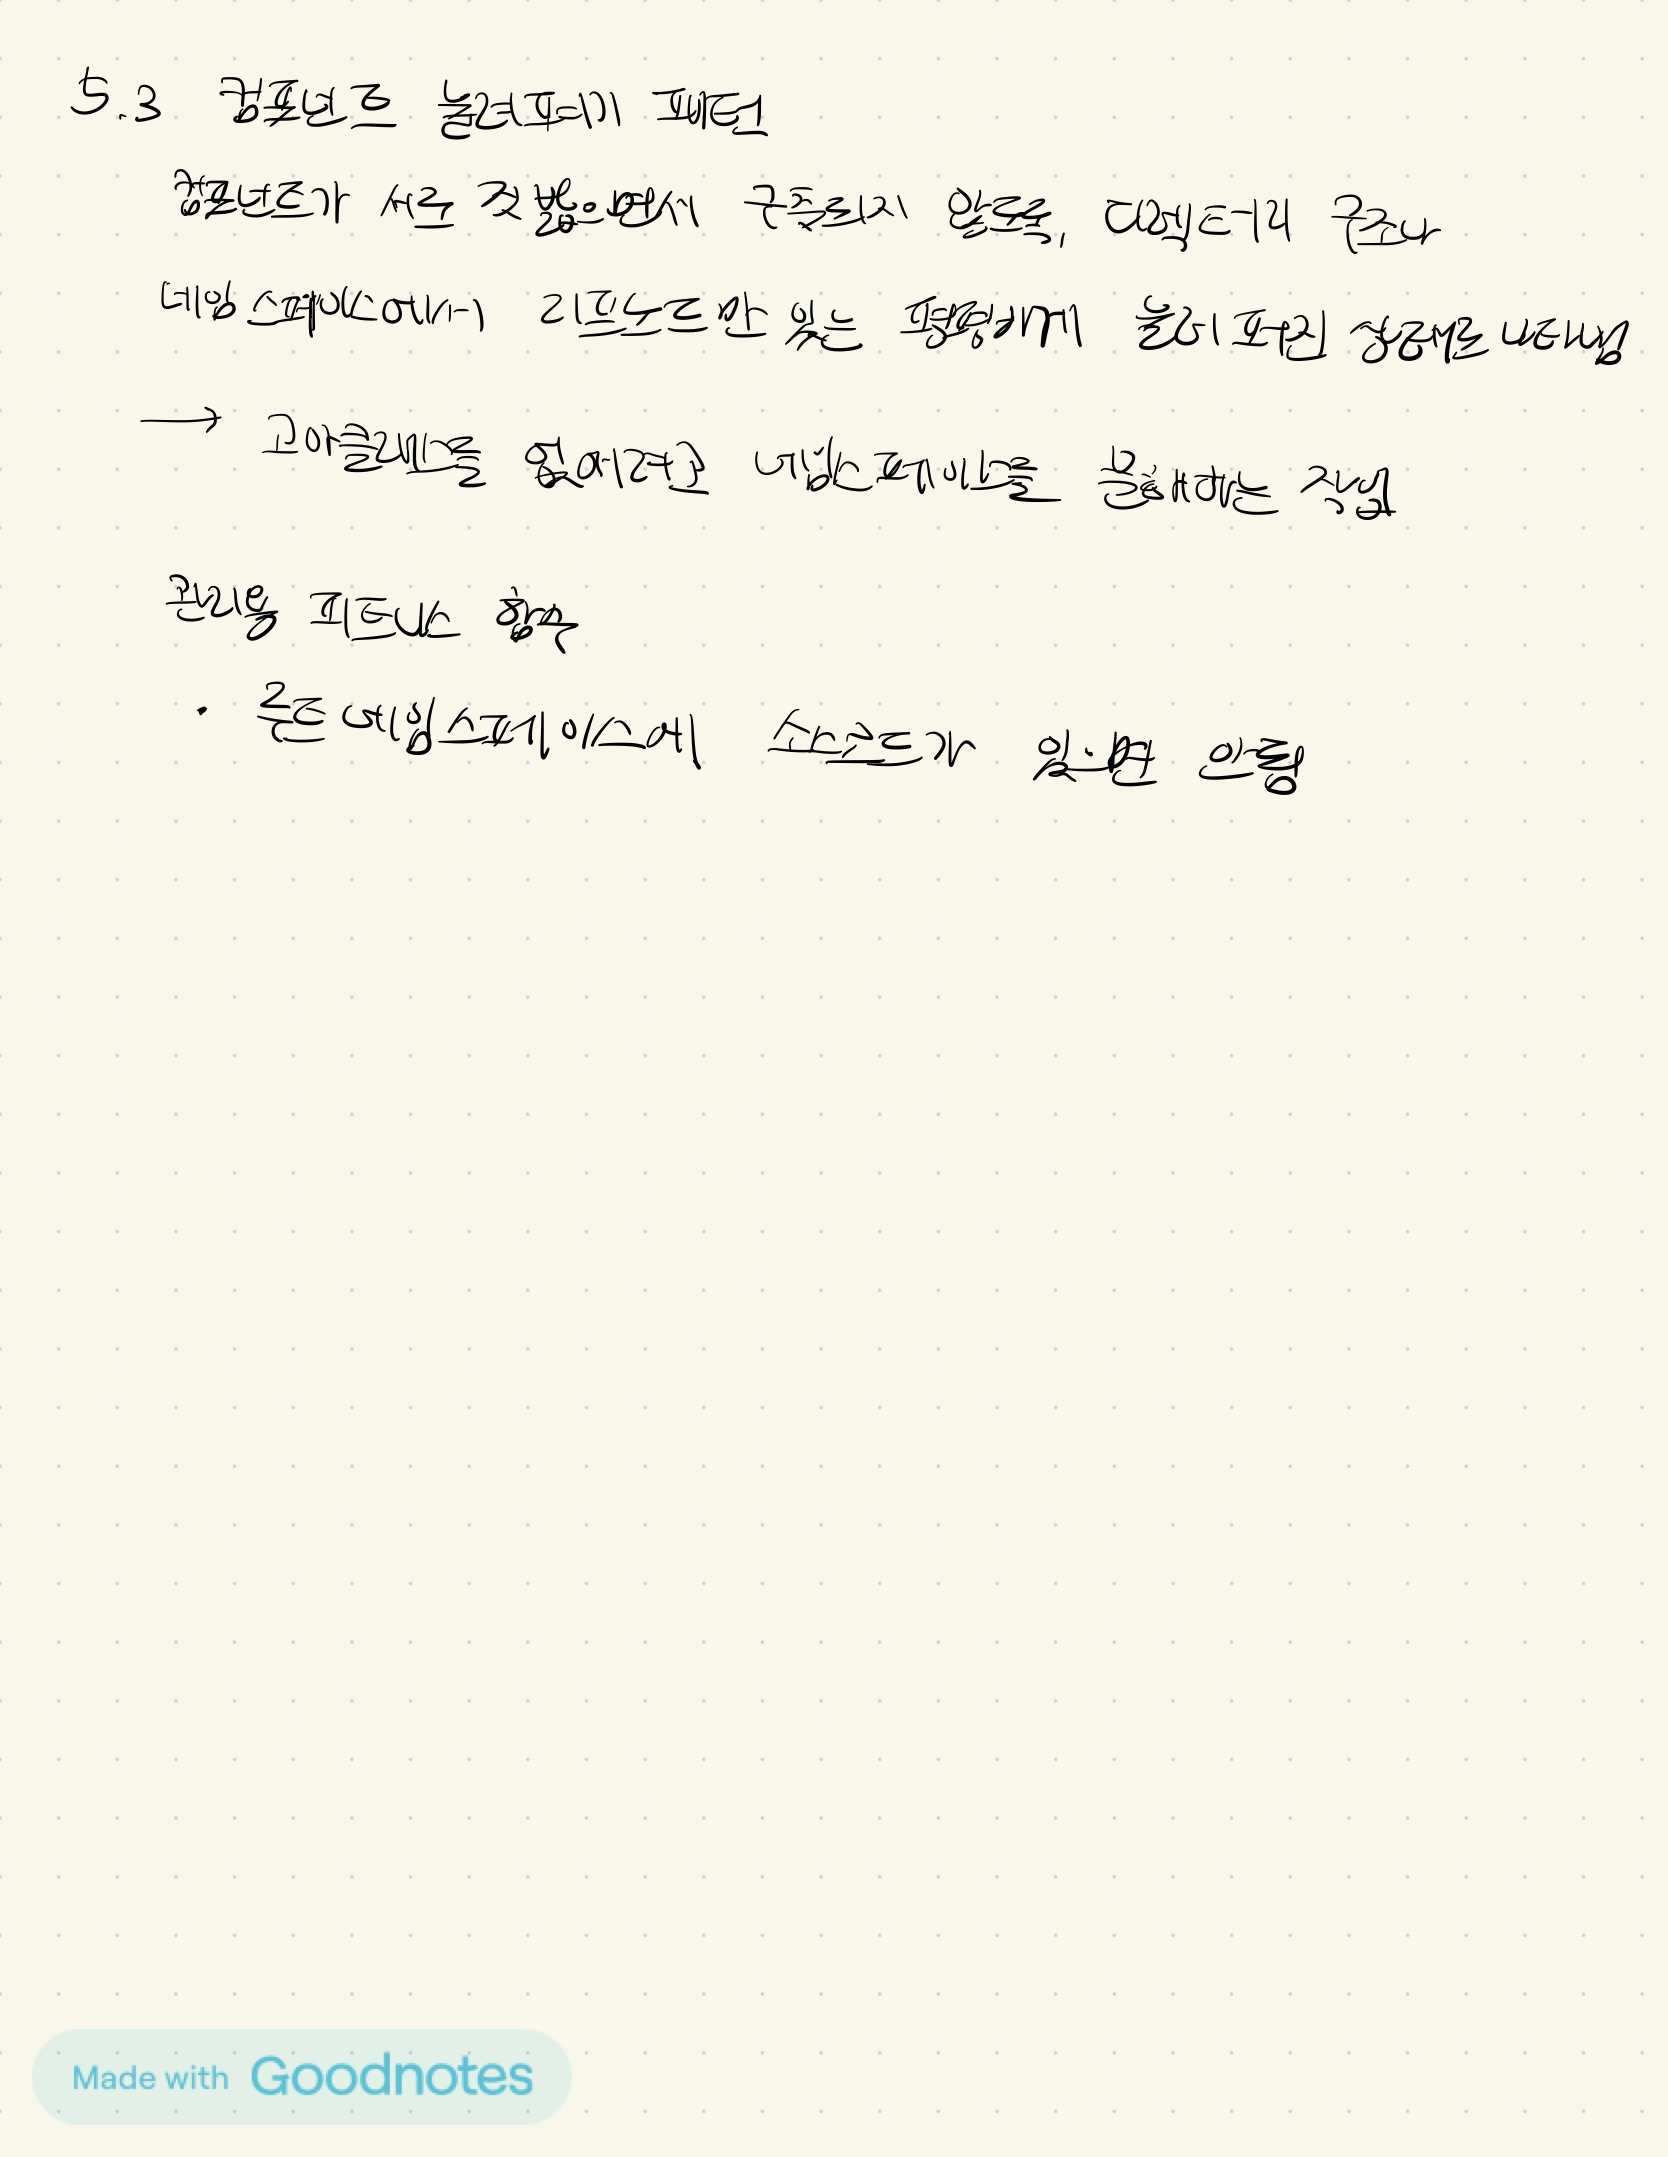 5.3 컴포넌트 눌러펴기 패턴
컴포넌트가 서로 짓밟으면서 구축되지 않도록, 디렉터리 구조나
네임스페이스에서 리프노드만 있는 평평하게 눌러 펴진 상태로 나타냄
→ 고아클래스를 없애려고 네임스페이스를 분해하는 작업
관리용 피트니스 함수
· 루트네임스페이스에 소스코드가 있으면 안됨
Made with Goodnotes